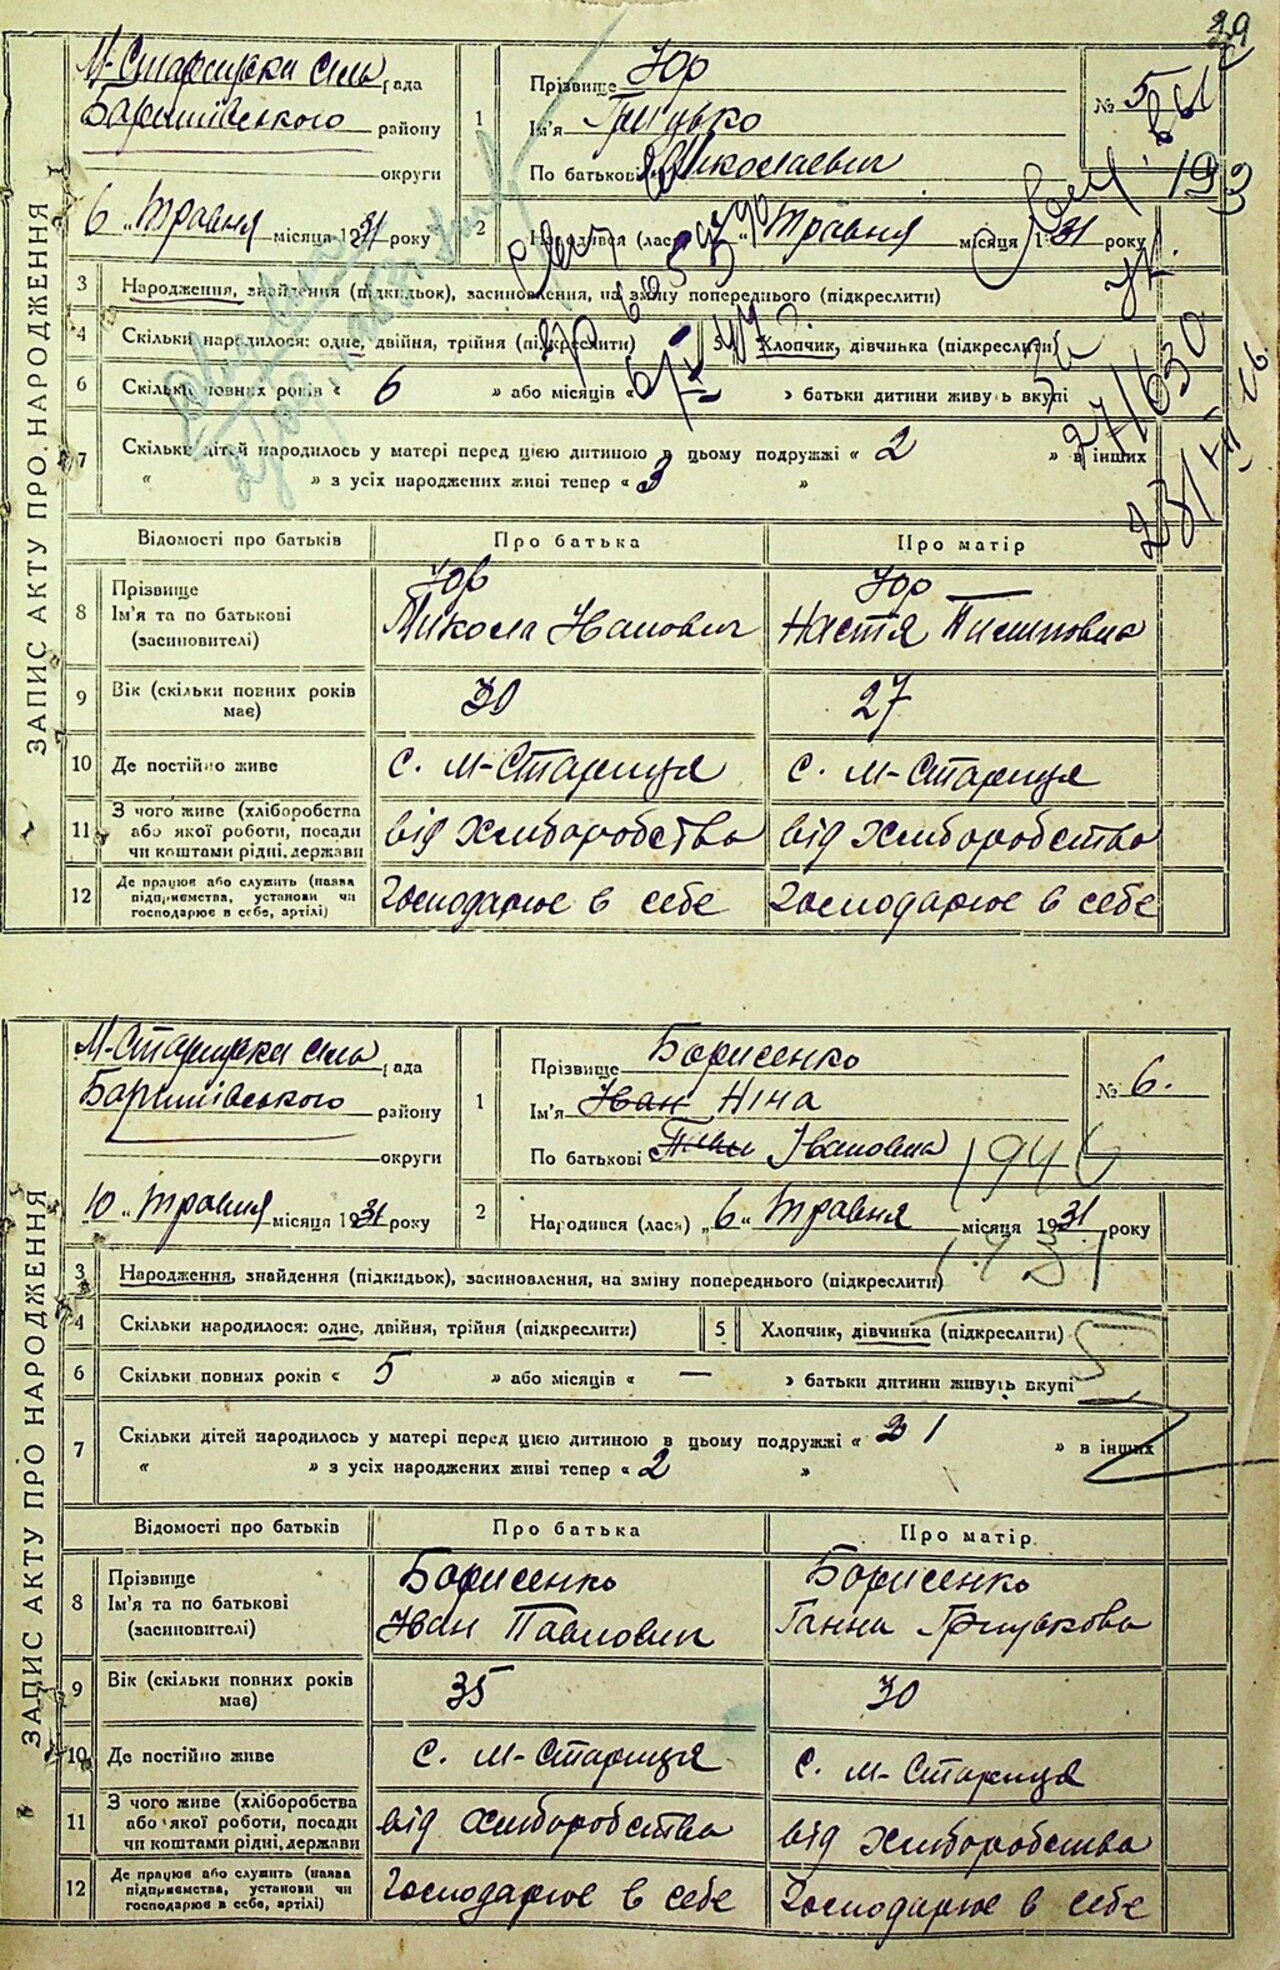 39
ЗАПИС АКТУ ПРО НАРОДЖЕННЯ
М-Старицька сіль рада
Баришівського району
округи
6 „ Травня місяця 1931 року
1
Прізвище Юр
Ім'я Грицько
По батькові Миколаевич
№ 5
2
Народився (лась) Травня місяця 1931 року
3 Народження, знайдення (підкидьок), засиновлення, на зміну попереднього (підкреслити)
4 Скільки народилося: одне, двійня, трійня (підкреслити) 5 Хлопчик, дівчинка (підкреслити)
6 Скільки повних років « 6 » або місяців « » батьки дитини живуть вкупі
7 Скільки дітей народилось у матері перед цією дитиною в цьому подружжі « 2 » в інших
« » з усіх народжених живі тепер « 3 »
Відомості про батьків Про батька Про матір
8 Прізвище Ім'я та по батькові (засиновителі)
Юр Микола Иванович
Юр Настя Пилиповна
9 Вік (скільки повних років має) 30 27
10 Де постійно живе с. М-Стариця с. М-Стариця
11 З чого живе (хліборобства або якої роботи, посади чи коштами рідні, держави від хліборобства від хліборобства
12 Де працює або служить (назва підприємства, установи чи господарює в себе, артілі) Господарює в себе Господарює в себе
ЗАПИС АКТУ ПРО НАРОДЖЕННЯ
М-Старицька сіль рада
Баришівського району
округи
10 „ Травня місяця 1931 року
1
Прізвище Борисенко
Ім'я Иван Ніна
По батькові Івановна
№ 6.
1946
2
Народився (лася) „ 6 “ Травня місяця 1931 року
3 Народження, знайдення (підкидьок), засиновлення, на зміну попереднього (підкреслити)
4 Скільки народилося: одне, двійня, трійня (підкреслити) 5 Хлопчик, дівчинка (підкреслити)
6 Скільки повних років « 5 » або місяців « — » батьки дитини живуть вкупі
7 Скільки дітей народилось у матері перед цією дитиною в цьому подружжі « 1 » в інших
« » з усіх народжених живі тепер « 2 »
Відомості про батьків Про батька Про матір
8 Прізвище Ім'я та по батькові (засиновителі)
Борисенко Иван Павлович
Борисенко Ганна Грицькова
9 Вік (скільки повних років має) 35 30
10 Де постійно живе с. М-Стариця с. М-Стариця
11 З чого живе (хліборобства або якої роботи, посади чи коштами рідні, держави від хліборобства від хліборобства
12 Де працює або служить (назва підприємства, установи чи господарює в себе, артілі) Господарює в себе Господарює в себе